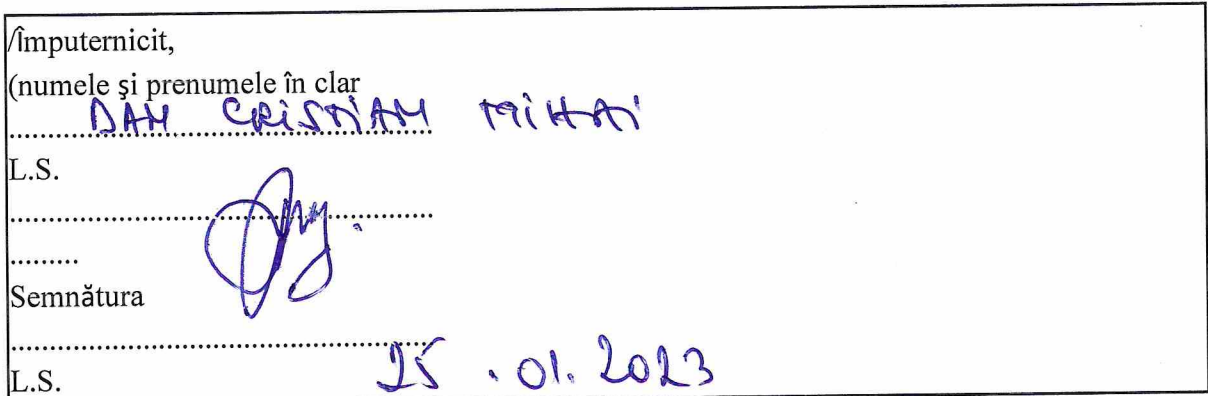 /Împuternicit,
(numele și prenumele în clar
DAN CRISTIAN MIHAI
..............................................
L.S.
..............................................
.........
Semnătura
..............................................
L.S. 25 . 01. 2023